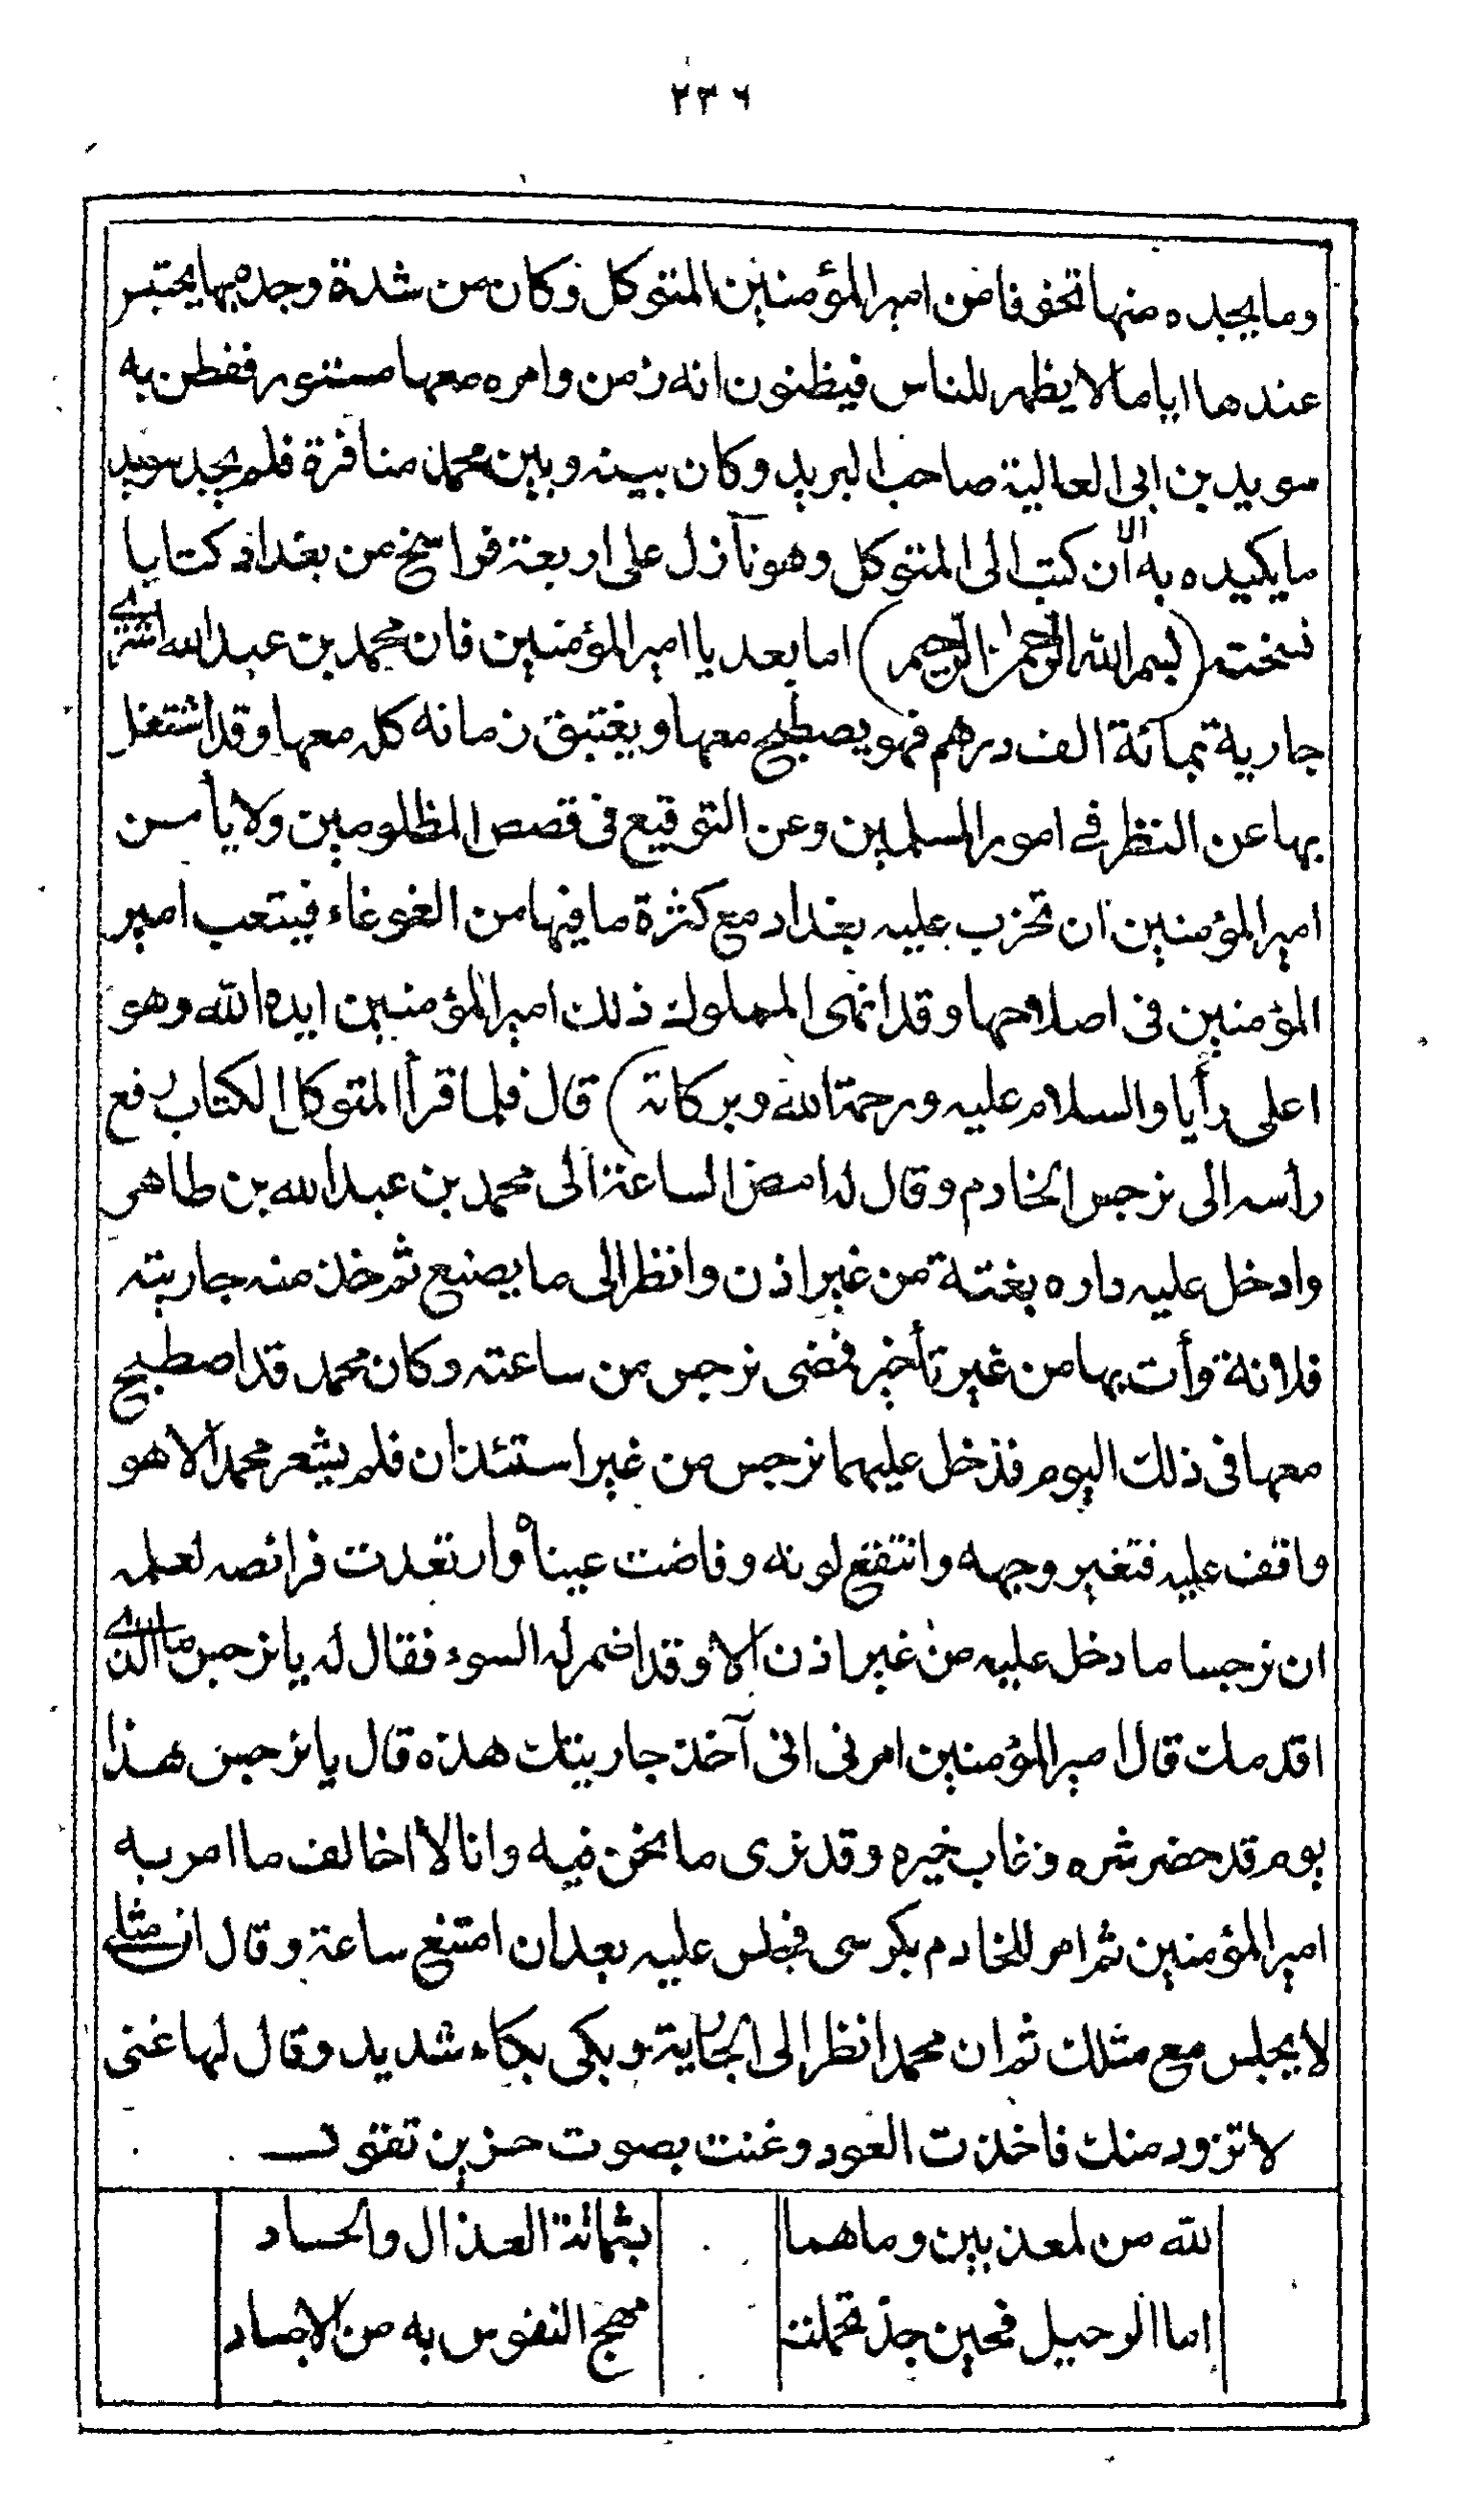 ٢٣٦
وما يجده منها تخوفا من امير المؤمنين المتوكل وكان من شدة وجده بها يختبر
عندها اياما لا يظهر للناس فيظنون انه زمن وامره معها مستور ففطن به
سويد بن ابى العالية صاحب البريد وكان بينه وبين محمد منافرة فلم يجد سويد
ما يكيده به الا ان كتب الى المتوكل وهو نازل على اربعة فراسخ من بغداد كتابا
نسخته (بسم الله الرحمن الرحيم) اما بعد يا امير المؤمنين فان محمد بن عبد الله اشترى
جارية بمائة الف درهم فهو يصطبح معها ويغتبق زمانه كله معها وقد اشتغل
بها عن النظر فى امور المسلمين وعن التوقيع فى قصص المظلومين ولا يأمن
امير المؤمنين ان تخرب عليه بغداد مع كثرة ما فيها من الغوغاء فيتعب امير
المؤمنين فى اصلاحها وقد انهى المملوك ذلك امير المؤمنين ايده الله وهو
اعلى رأيا والسلام عليه ورحمة الله وبركاته) قال فلما قرأ المتوكل الكتاب رفع
رأسه الى نرجس الخادم وقال له امض الساعة الى محمد بن عبد الله بن طاهر
وادخل عليه داره بغتة من غير اذن وانظر الى ما يصنع ثم خذ منه جاريته
فلانة وأت بها من غير تأخير فمضى نرجس من ساعته وكان محمد قد اصطبح
معها فى ذلك اليوم فدخل عليهما نرجس من غير استئذان فلم يشعر محمد الا هو
واقف عليه فتغير وجهه وانتقع لونه وفاضت عيناه وارتعدت فرائصه لعلمه
ان نرجسا ما دخل عليه من غير اذن الا وقد اضمر له السوء فقال له يا نرجس ما الذى
اقدمك قال امير المؤمنين امرنى انى آخذ جاريتك هذه قال يا نرجس هذا
يوم قد حضر شره وغاب خيره وقد نرى ما نحن فيه وانا لا اخالف ما امر به
امير المؤمنين ثم امر للخادم بكرسى فجلس عليه بعد ان امتنع ساعة وقال ان مثلى
لا يجلس مع مثلك ثم ان محمدا نظر الى الجارية وبكى بكاء شديد وقال لها غنى
لا تزود منك فاخذت العود وغنت بصوت حزين تقول
لله من لمعذبين وما هما بشماتة العذال والحساد
اما الرحيل فحين جد تحملت مهج النفوس به من الاجساد